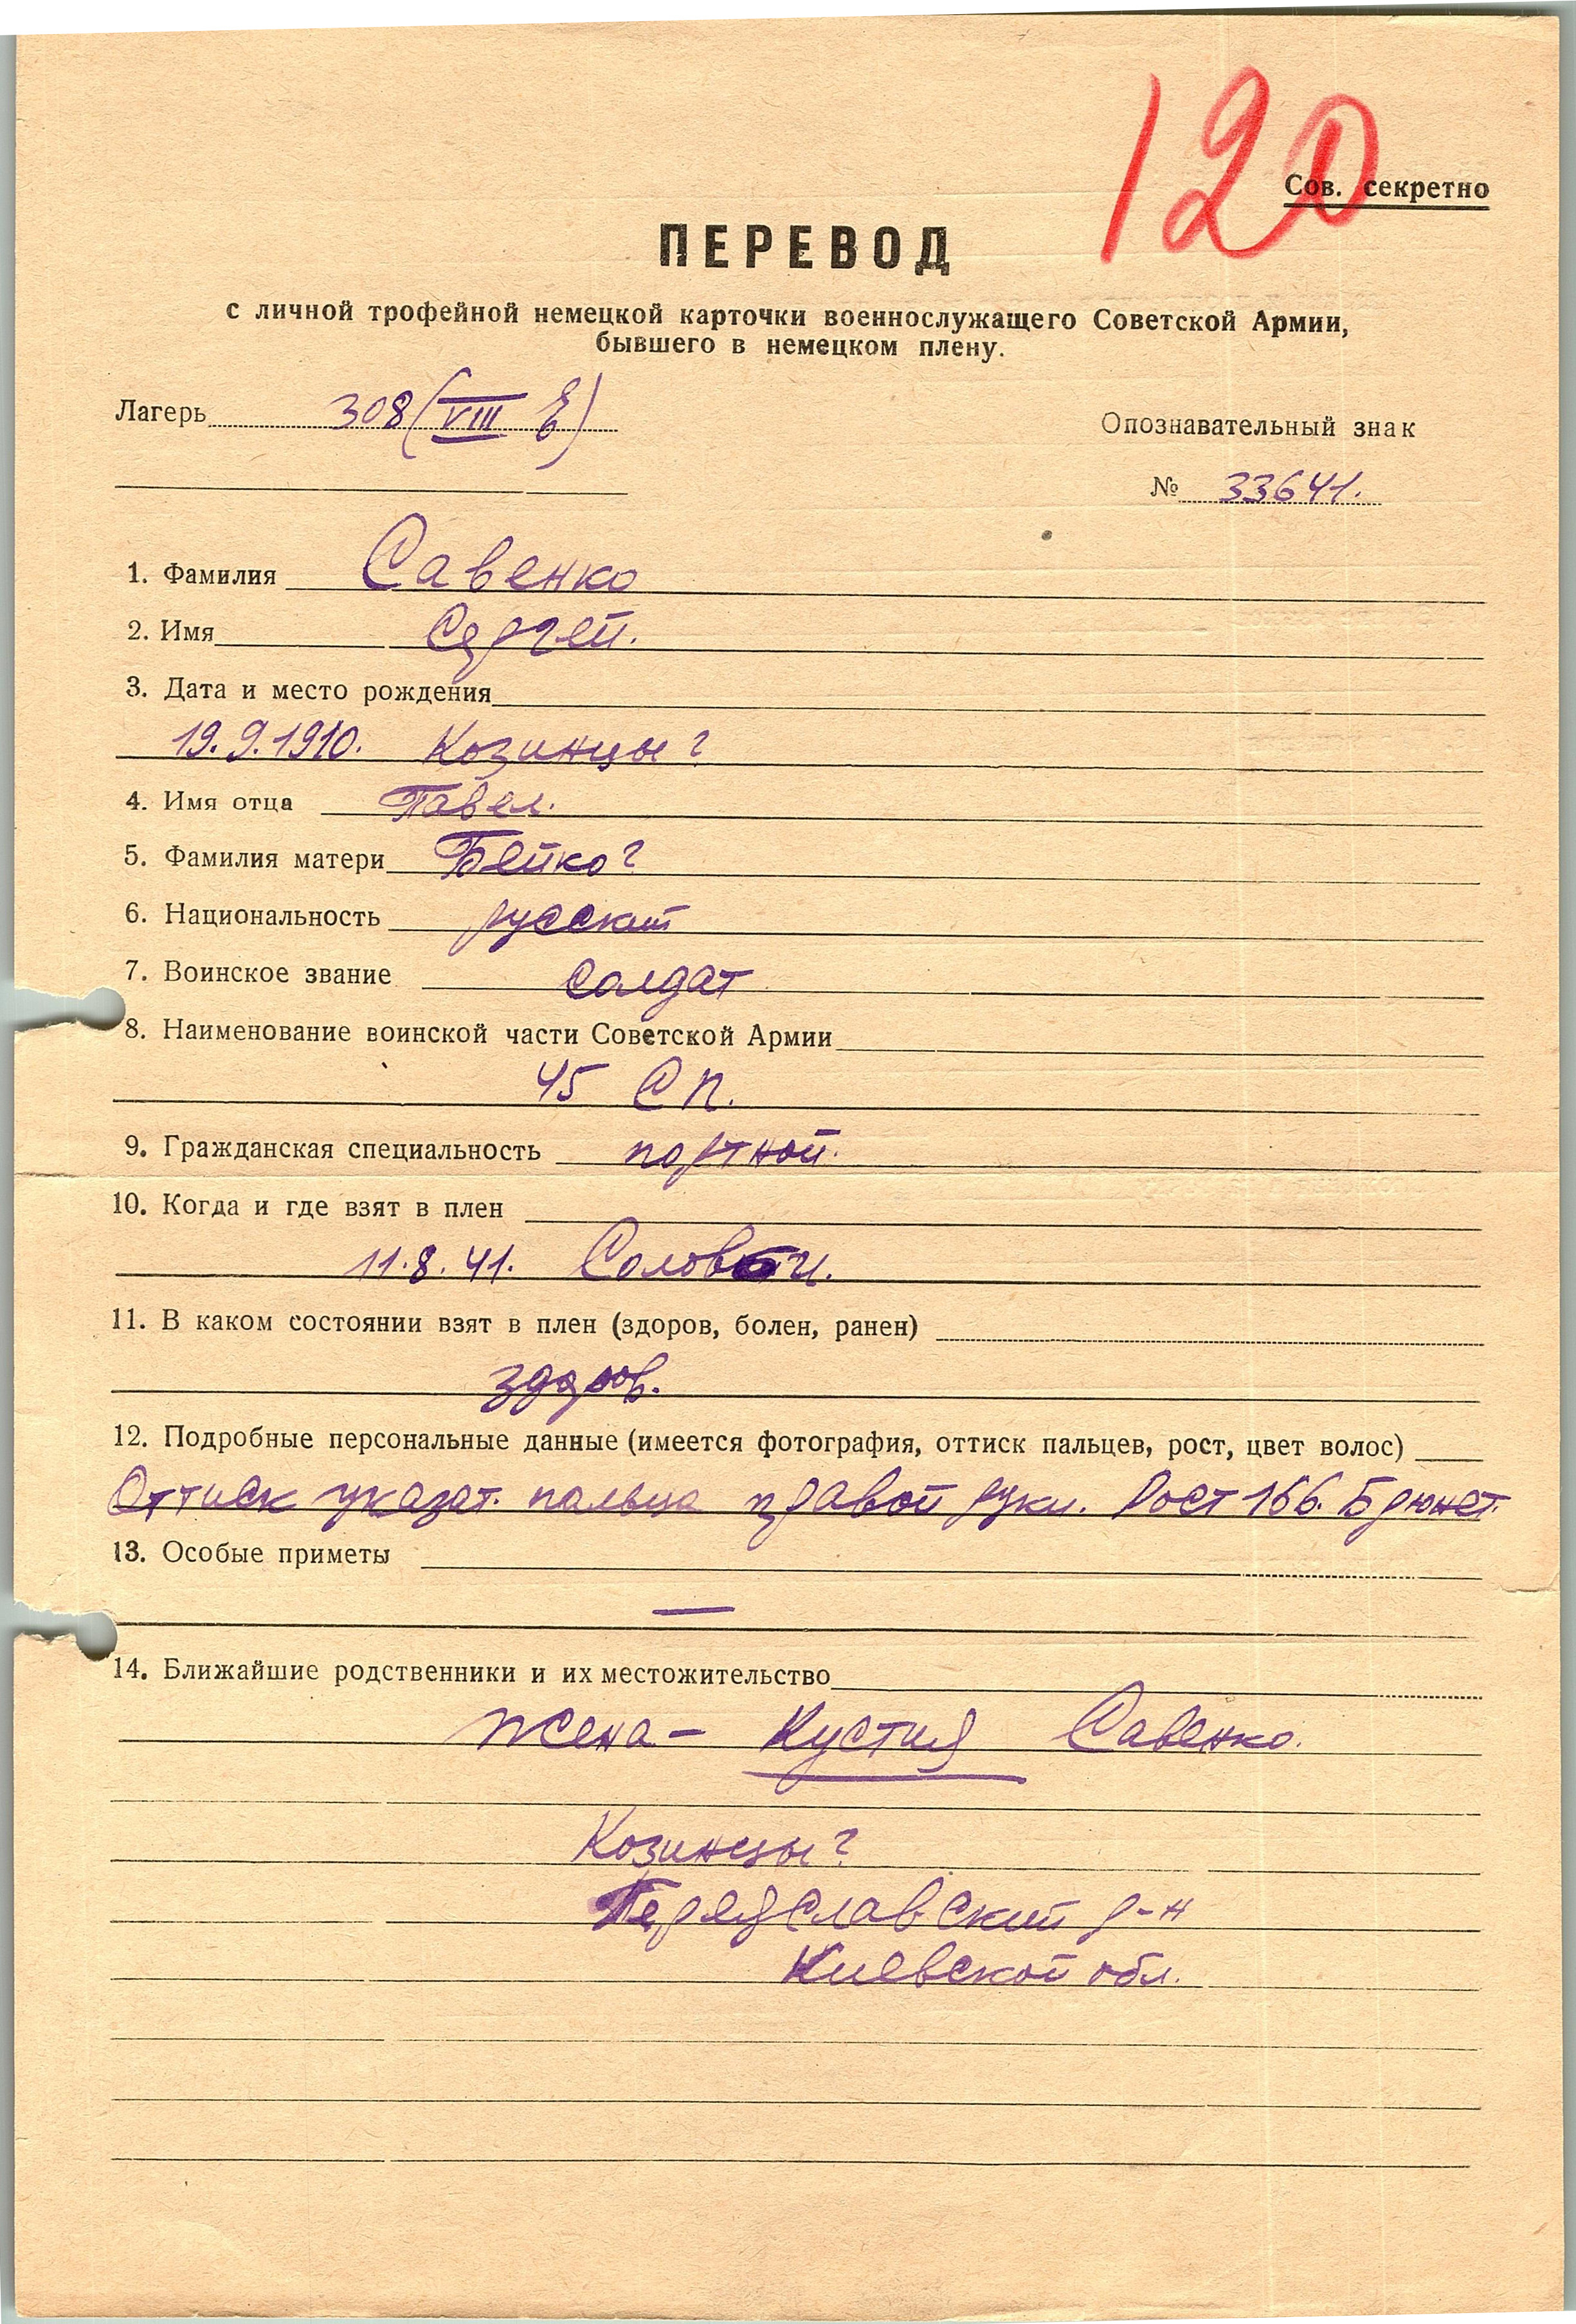 120
Сов. секретно
ПЕРЕВОД
с личной трофейной немецкой карточки военнослужащего Советской Армии,
бывшего в немецком плену.
Лагерь 308 (VIII E)
Опознавательный знак
№ 33641.
1. Фамилия Савенко
2. Имя Сергей.
3. Дата и место рождения
19.9.1910. Козинцы?
4. Имя отца Павел.
5. Фамилия матери Бейко?
6. Национальность русский
7. Воинское звание солдат
8. Наименование воинской части Советской Армии
45 СП.
9. Гражданская специальность портной.
10. Когда и где взят в плен
11.8.41.
11. В каком состоянии взят в плен (здоров, болен, ранен)
здоров.
12. Подробные персональные данные (имеется фотография, оттиск пальцев, рост, цвет волос)
Оттиск указат. пальца правой руки. Рост 166. Брюнет.
13. Особые приметы
—
14. Ближайшие родственники и их местожительство
Жена – Кустия Савенко.
Козинцы?
Переяславский р-н
Киевской обл.